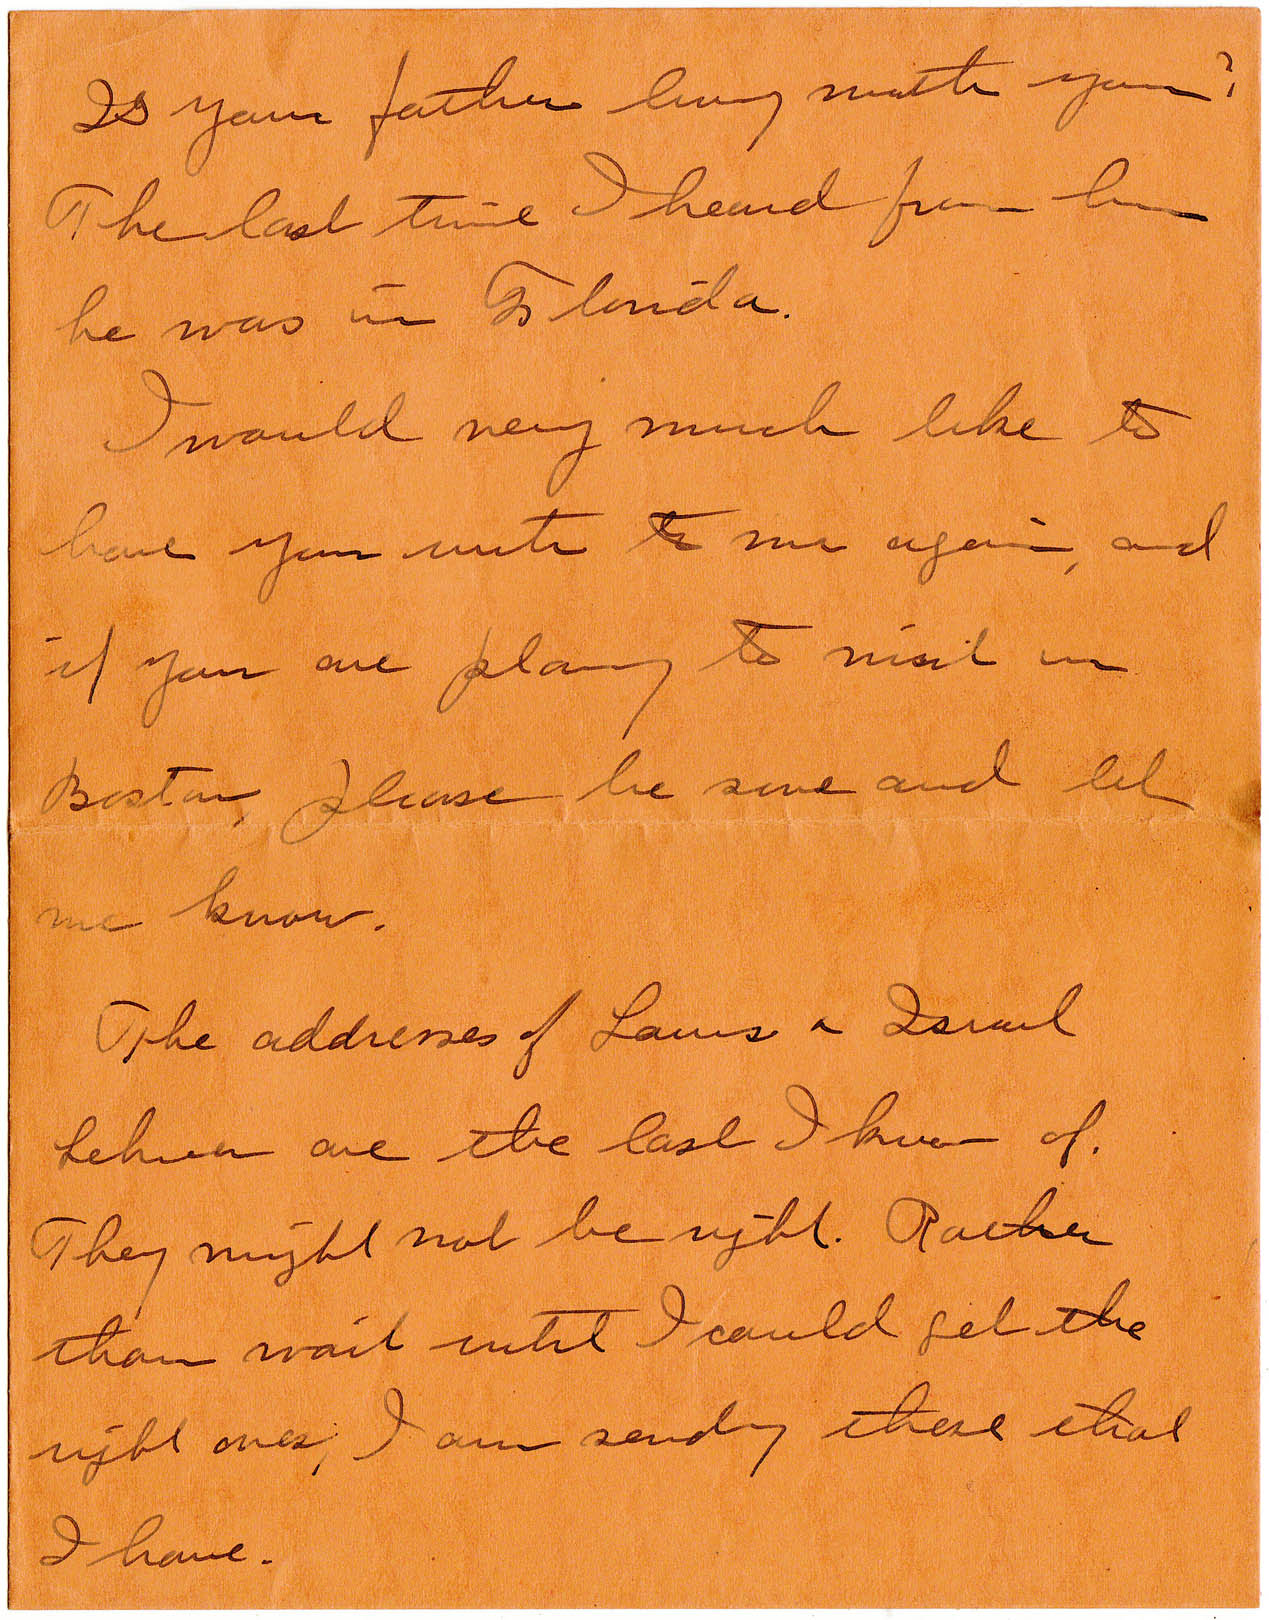 Is your father living with you?
The last time I heard from him
he was in Florida.
I would very much like to
have you write to me again, and
if you are planing to visit in
Boston, please be sure and let
me know.
The addresses of Louis & Israel
are the last I know of.
They might not be right. Rather
than wait until I could get the
right ones, I am sending these that
I have.